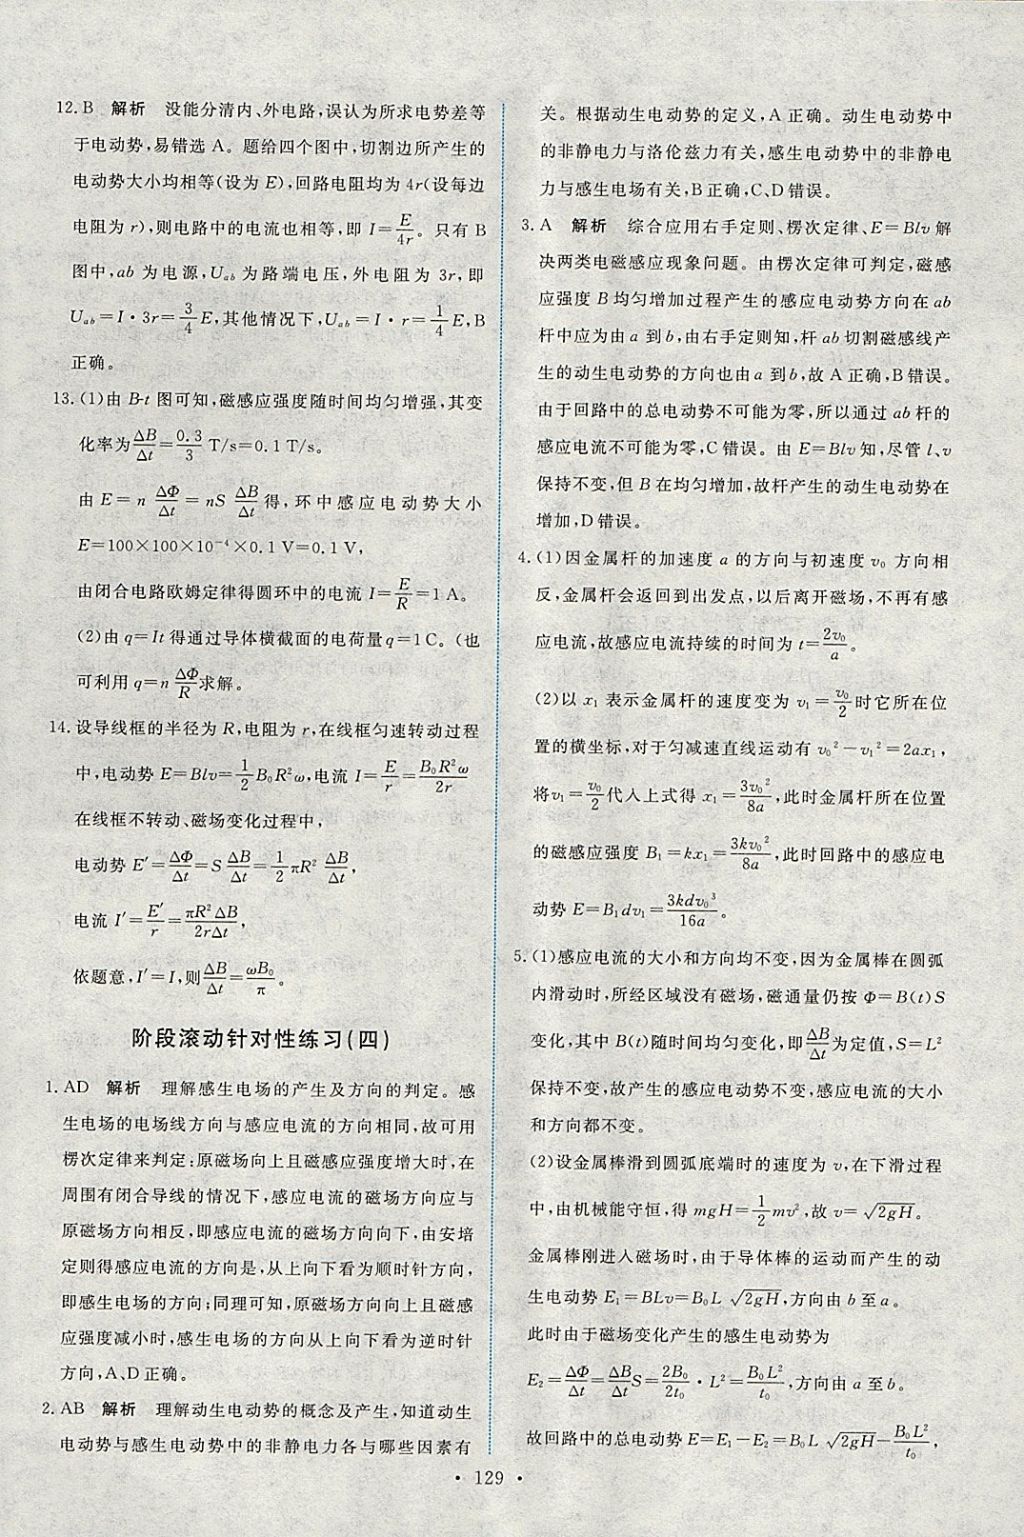 12. B　解析　没能分清内、外电路,误认为所求电势差等
于电动势,易错选 A。题给四个图中,切割边所产生的
电动势大小均相等(设为 E),回路电阻均为 4r(设每边
电阻为 r),则电路中的电流也相等,即 I=E/4r。只有 B
图中,ab 为电源,U_ab 为路端电压,外电阻为 3r,即
U_ab=I·3r=3/4 E,其他情况下,U_ab=I·r=1/4 E,B
正确。
13. (1)由 B-t 图可知,磁感应强度随时间均匀增强,其变
化率为 ΔB/Δt=0.3/3 T/s=0.1 T/s。
由 E=n ΔΦ/Δt=nS ΔB/Δt 得,环中感应电动势大小
E=100×100×10⁻⁴×0.1 V=0.1 V。
由闭合电路欧姆定律得圆环中的电流 I=E/R=1 A。
(2)由 q=It 得通过导体横截面的电荷量 q=1 C。(也
可利用 q=n ΔΦ/R 求解。
14. 设导线框的半径为 R,电阻为 r,在线框匀速转动过程
中,电动势 E=Blv=1/2 B₀R²ω,电流 I=E/r=B₀R²ω/2r
在线框不转动、磁场变化过程中,
电动势 E′=ΔΦ/Δt=S ΔB/Δt=1/2 πR² ΔB/Δt,
电流 I′=E′/r=πR²ΔB/2rΔt,
依题意,I′=I,则 ΔB/Δt=ωB₀/π。
阶段滚动针对性练习(四)
1. AD　解析　理解感生电场的产生及方向的判定。感
生电场的电场线方向与感应电流的方向相同,故可用
楞次定律来判定:原磁场向上且磁感应强度增大时,在
周围有闭合导线的情况下,感应电流的磁场方向应与
原磁场方向相反,即感应电流的磁场方向向下,由安培
定则得感应电流的方向是,从上向下看为顺时针方向,
即感生电场的方向;同理可知,原磁场方向向上且磁感
应强度减小时,感生电场的方向从上向下看为逆时针
方向,A、D 正确。
2. AB　解析　理解动生电动势的概念及产生,知道动生
电动势与感生电动势中的非静电力各与哪些因素有
关。根据动生电动势的定义,A 正确。动生电动势中
的非静电力与洛伦兹力有关,感生电动势中的非静电
力与感生电场有关,B 正确,C、D 错误。
3. A　解析　综合应用右手定则、楞次定律、E=Blv 解
决两类电磁感应现象问题。由楞次定律可判定,磁感
应强度 B 均匀增加过程产生的感应电动势方向在 ab
杆中应为由 a 到 b,由右手定则知,杆 ab 切割磁感线产
生的动生电动势的方向也由 a 到 b,故 A 正确,B 错误。
由于回路中的总电动势不可能为零,所以通过 ab 杆的
感应电流不可能为零,C 错误。由 E=Blv 知,尽管 l、v
保持不变,但 B 在均匀增加,故杆产生的动生电动势在
增加,D 错误。
4. (1)因金属杆的加速度 a 的方向与初速度 v₀ 方向相
反,金属杆会返回到出发点,以后离开磁场,不再有感
应电流,故感应电流持续的时间为 t=2v₀/a。
(2)以 x₁ 表示金属杆的速度变为 v₁=v₀/2 时它所在位
置的横坐标,对于匀减速直线运动有 v₀²-v₁²=2ax₁,
将 v₁=v₀/2 代入上式得 x₁=3v₀²/8a,此时金属杆所在位置
的磁感应强度 B₁=kx₁=3kv₀²/8a,此时回路中的感应电
动势 E=B₁dv₁=3kdv₀³/16a。
5. (1)感应电流的大小和方向均不变,因为金属棒在圆弧
内滑动时,所经区域没有磁场,磁通量仍按 Φ=B(t)S
变化,其中 B(t)随时间均匀变化,即 ΔB/Δt 为定值,S=L²
保持不变,故产生的感应电动势不变,感应电流的大小
和方向都不变。
(2)设金属棒滑到圆弧底端时的速度为 v,在下滑过程
中,由机械能守恒,得 mgH=1/2 mv²,故 v=√2gH。
金属棒刚进入磁场时,由于导体棒的运动而产生的动
生电动势 E₁=BLv=B₀L √2gH,方向由 b 至 a。
此时由于磁场变化产生的感生电动势为
E₂=ΔΦ/Δt=ΔB/Δt S=2B₀/2t₀·L²=B₀L²/t₀,方向由 a 至 b。
故回路中的总电动势 E=E₁-E₂=B₀L √2gH-B₀L²/t₀,
• 129 •